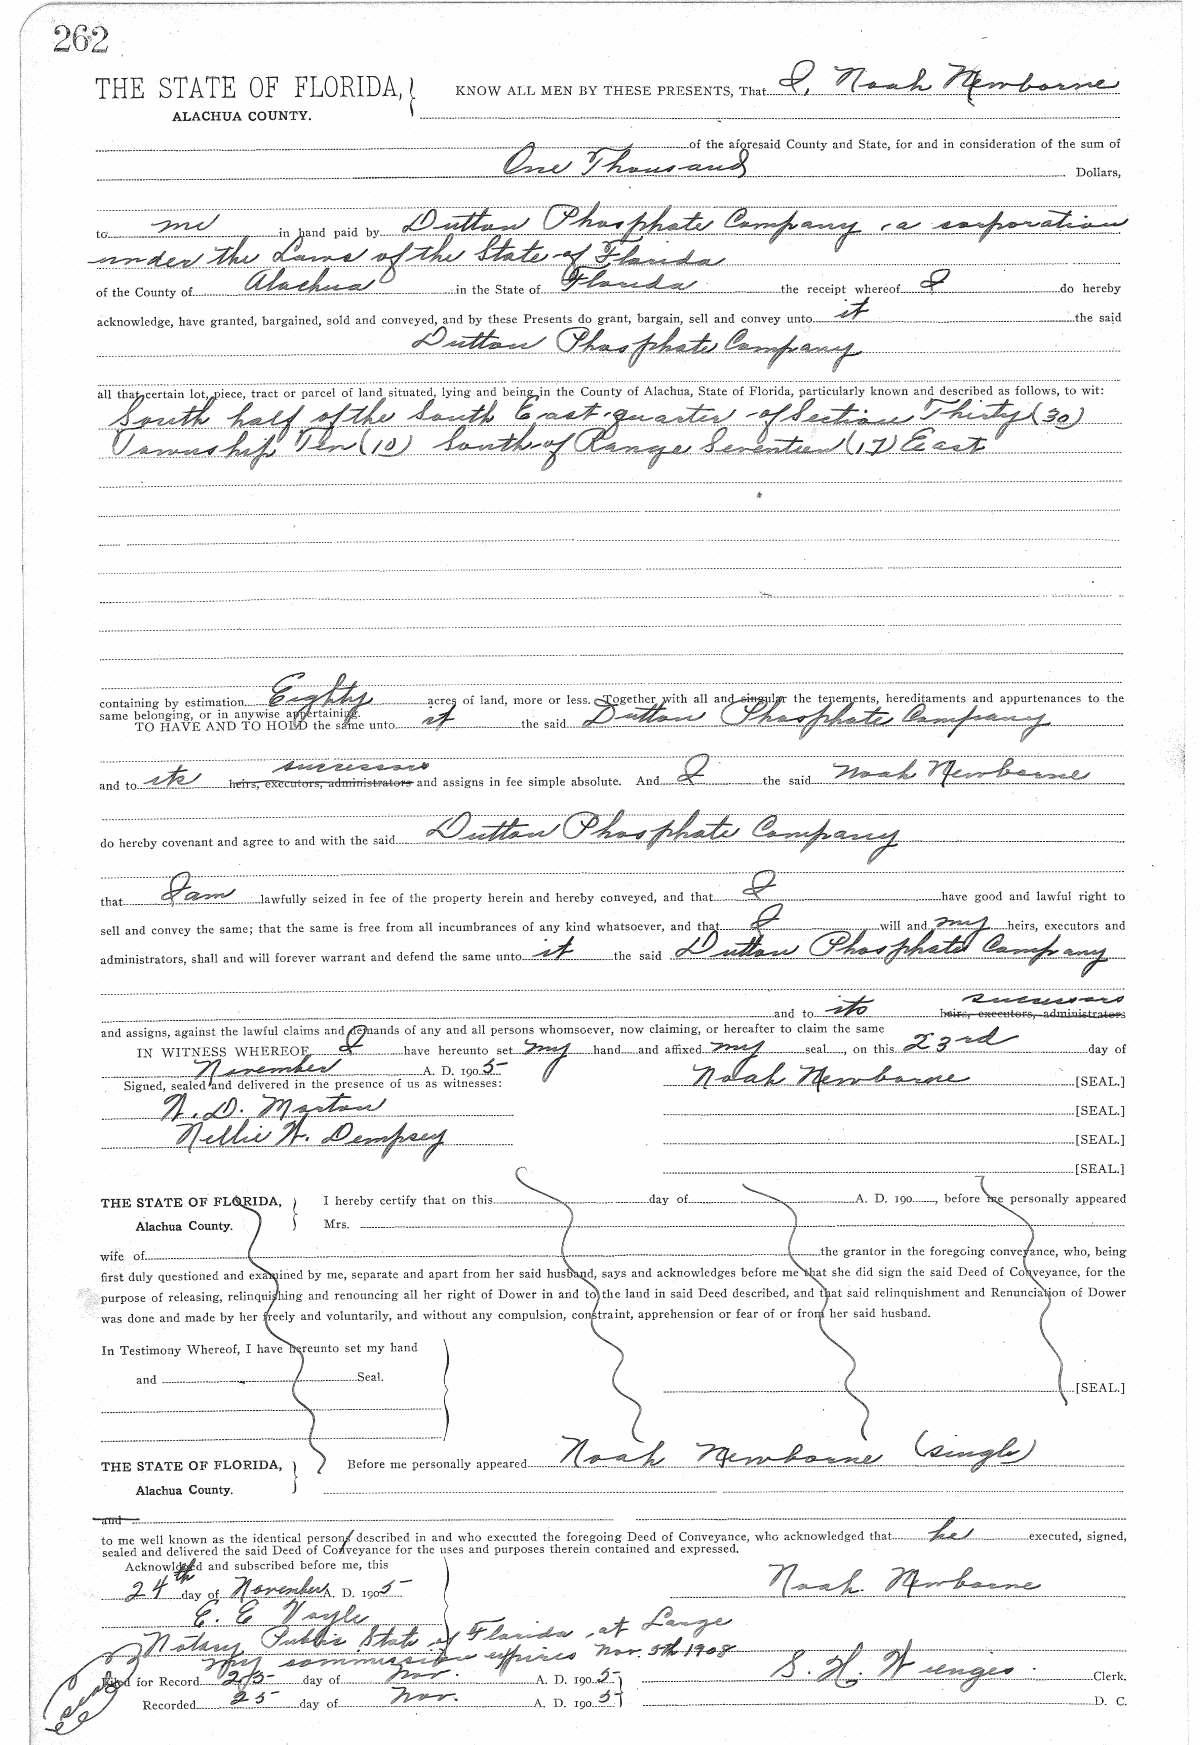 262
THE STATE OF FLORIDA, KNOW ALL MEN BY THESE PRESENTS, That I, Noah Newborne
ALACHUA COUNTY.
of the aforesaid County and State, for and in consideration of the sum of
One Thousand Dollars,
to me in hand paid by Dutton Phosphate Company, a corporation
under the Laws of the State of Florida
of the County of Alachua in the State of Florida the receipt whereof I do hereby
acknowledge, have granted, bargained, sold and conveyed, and by these Presents do grant, bargain, sell and convey unto it the said
Dutton Phosphate Company
all that certain lot, piece, tract or parcel of land situated, lying and being in the County of Alachua, State of Florida, particularly known and described as follows, to wit:
South half of the South East quarter of Section Thirty (30)
Township Ten (10) South of Range Seventeen (17) East
containing by estimation Eighty acres of land, more or less. Together with all and singular the tenements, hereditaments and appurtenances to the
same belonging, or in anywise appertaining.
TO HAVE AND TO HOLD the same unto it the said Dutton Phosphate Company
successors
and to its heirs, executors, administrators and assigns in fee simple absolute. And I the said Noah Newborne
do hereby covenant and agree to and with the said Dutton Phosphate Company
that I am lawfully seized in fee of the property herein and hereby conveyed, and that I have good and lawful right to
sell and convey the same; that the same is free from all incumbrances of any kind whatsoever, and that I will and my heirs, executors and
administrators, shall and will forever warrant and defend the same unto it the said Dutton Phosphate Company
successors
and to its heirs, executors, administrators
and assigns, against the lawful claims and demands of any and all persons whomsoever, now claiming, or hereafter to claim the same
IN WITNESS WHEREOF I have hereunto set my hand and affixed my seal, on this 23rd day of
November A. D. 1905
Signed, sealed and delivered in the presence of us as witnesses: Noah Newborne [SEAL.]
N. D. Morton [SEAL.]
Nellie W. Dempsey [SEAL.]
[SEAL.]
THE STATE OF FLORIDA, I hereby certify that on this day of A. D. 190 , before me personally appeared
Alachua County. Mrs.
wife of the grantor in the foregoing conveyance, who, being
first duly questioned and examined by me, separate and apart from her said husband, says and acknowledges before me that she did sign the said Deed of Conveyance, for the
purpose of releasing, relinquishing and renouncing all her right of Dower in and to the land in said Deed described, and that said relinquishment and Renunciation of Dower
was done and made by her freely and voluntarily, and without any compulsion, constraint, apprehension or fear of or from her said husband.
In Testimony Whereof, I have hereunto set my hand
and Seal.
[SEAL.]
THE STATE OF FLORIDA, Before me personally appeared Noah Newborne (single)
Alachua County.
and
to me well known as the identical person described in and who executed the foregoing Deed of Conveyance, who acknowledged that he executed, signed,
sealed and delivered the said Deed of Conveyance for the uses and purposes therein contained and expressed.
Acknowledged and subscribed before me, this
24th day of November A. D. 1905 Noah Newborne
E. E. Voyle
Notary Public State of Florida at Large
My commission expires Nov. 5th 1908
Filed for Record 25 day of Nov. A. D. 1905 S. H. Wienges Clerk.
Recorded 25 day of Nov. A. D. 1905 D. C.